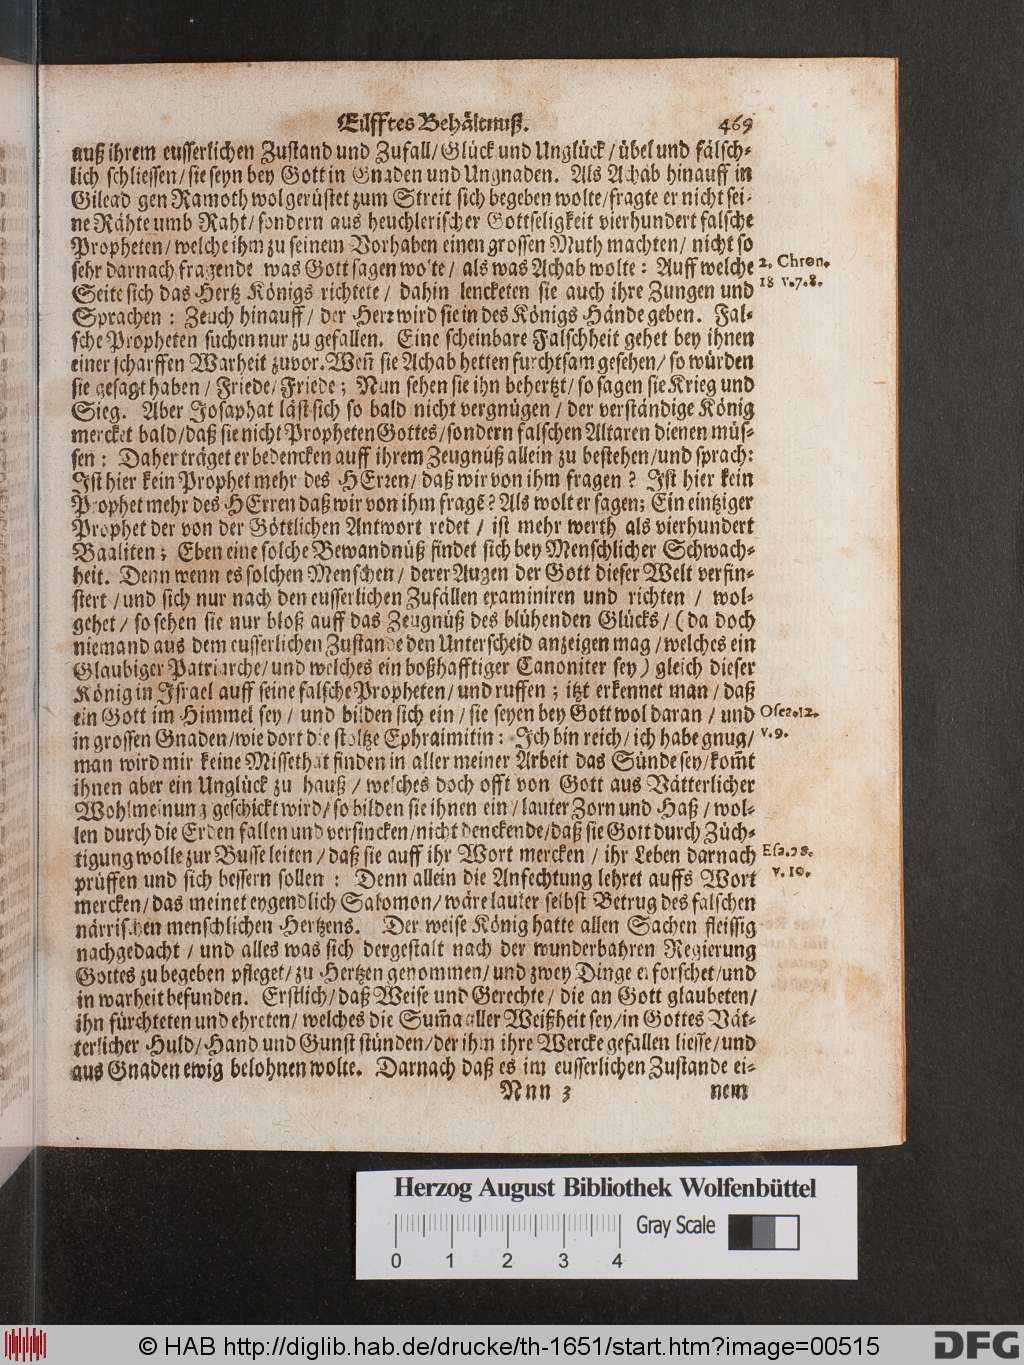 Eilfftes Behältnuß. 469
auß ihrem eusserlichen Zustand und Zufall/ Glück und Unglück/ übel und fälsch-
lich schliessen/ sie seyn bey Gott in Gnaden und Ungnaden. Als Achab hinauff in
Gilead gen Ramoth wol gerüstet zum Streit sich begeben wolte/ fragte er nicht sei-
ne Rähte umb Raht/ sondern aus heuchlerischer Gottseligkeit vierhundert falsche
Propheten/ welche ihm zu seinem Vorhaben einen grossen Muth machten/ nicht so
sehr darnach fragende was Gott sagen wolte/ als was Achab wolte: Auff welche
2. Chron.
18 v.7.8.
Seite sich das Hertz Königs richtete/ dahin lencketen sie auch ihre Zungen und
Sprachen: Zeuch hinauff/ der Herr wird sie in des Königs Hände geben. Fal-
sche Propheten suchen nur zu gefallen. Eine scheinbare Falschheit gehet bey ihnen
einer scharffen Warheit zuvor. Weñ sie Achab hetten furchtsam gesehen/ so würden
sie gesagt haben/ Friede/ Friede; Nun sehen sie ihn behertzt/ so sagen sie Krieg und
Sieg. Aber Josaphat läst sich so bald nicht vergnügen/ der verständige König
mercket bald/ daß sie nicht Propheten Gottes/ sondern falschen Altaren dienen müs-
sen: Daher träget er bedencken auff ihrem Zeugnüß allein zu bestehen/ und sprach:
Ist hier kein Prophet mehr des HErren/ daß wir von ihm fragen? Ist hier kein
Prophet mehr des HErren daß wir von ihm fragē? Als wolt er sagen; Ein eintziger
Prophet der von der Göttlichen Antwort redet/ ist mehr werth als vierhundert
Baaliten; Eben eine solche Bewandnüß findet sich bey Menschlicher Schwach-
heit. Denn wenn es solchen Menschen/ derer Augen der Gott dieser Welt verfin-
stert/ und sich nur nach den eusserlichen Zufällen examiniren und richten/ wol-
gehet/ so sehen sie nur bloß auff das Zeugnüß des blühenden Glücks/ (da doch
niemand aus dem eusserlichen Zustande den Unterscheid anzeigen mag/ welches ein
Glaubiger Patriarche/ und welches ein boßhafftiger Canoniter sey) gleich dieser
König in Israel auff seine falsche Propheten/ und ruffen; itzt erkennet man/ daß
ein Gott im Himmel sey/ und bilden sich ein/ sie seyen bey Gott wol daran/ und
Osee.12.
v.9.
in grossen Gnaden/ wie dort die stoltze Ephraimitin: Ich bin reich/ ich habe gnug/
man wird mir keine Missethat finden in aller meiner Arbeit das Sünde sey/ kom̃t
ihnen aber ein Unglück zu hauß/ welches doch offt von Gott aus Vätterlicher
Wohlmeinung geschickt wird/ so bilden sie ihnen ein/ lauter Zorn und Haß/ wol-
len durch die Erden fallen und versincken/ nicht denckende/ daß sie Gott durch Züch-
tigung wolle zur Busse leiten/ daß sie auff ihr Wort mercken/ ihr Leben darnach
v. 10.
prüffen und sich bessern sollen: Denn allein die Anfechtung lehret auffs Wort
mercken/ das meinet eygendlich Salomon/ wäre lauter selbst Betrug des falschen
närrischen menschlichen Hertzens. Der weise König hatte allen Sachen fleissig
nachgedacht/ und alles was sich dergestalt nach der wunderbahren Regierung
Gottes zu begeben pfleget/ zu Hertzen genommen/ und zwey Dinge erforschet/ und
in warheit befunden. Erstlich/ daß Weise und Gerechte/ die an Gott glaubeten/
ihn fürchteten und ehreten/ welches die Sum̃a aller Weißheit sey/ in Gottes Vät-
terlicher Huld/ Hand und Gunst stünden/ der ihm ihre Wercke gefallen liesse/ und
aus Gnaden ewig belohnen wolte. Darnach daß es im eusserlichen Zustande ei-
Nnn 3 nem
Herzog August Bibliothek Wolfenbüttel
Gray Scale
0 1 2 3 4
© HAB http://diglib.hab.de/drucke/th-1651/start.htm?image=00515
DFG